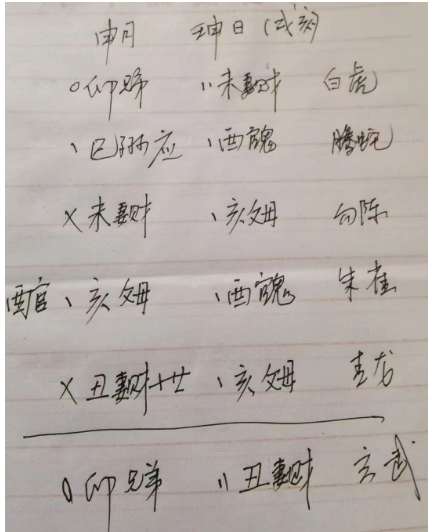 申月 壬申日 (戌亥)
0卯兄 、、未妻财 白虎
、巳孙应 、酉官鬼 腾蛇
X未妻财 、亥父母 勾陈
酉官、亥父母 、酉官鬼 朱雀
X丑妻财世 、亥父母 青龙
0卯兄弟 、、丑妻财 玄武